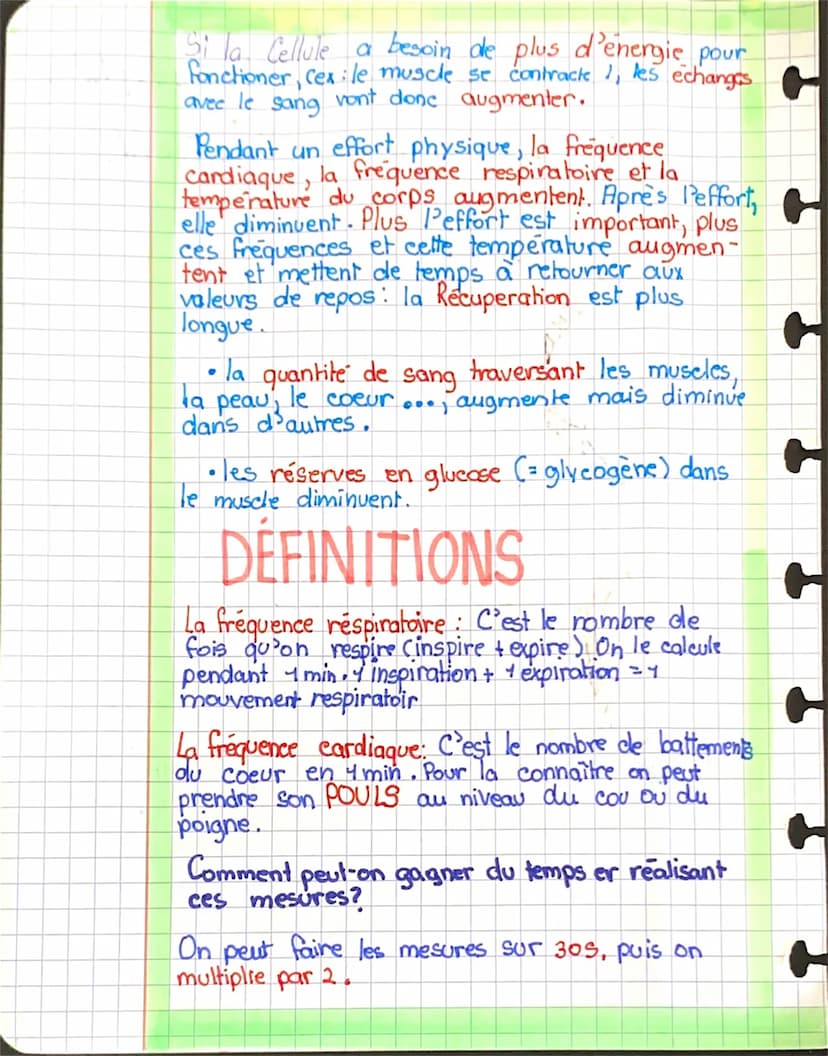 Si la Cellule a besoin de plus d'énergie pour
fonctioner, (ex : le muscle se contracte ), les échanges
avec le sang vont donc augmenter.
Pendant un effort physique, la fréquence
cardiaque, la fréquence respiratoire et la
température du corps augmentent. Après l'effort,
elle diminuent. Plus l'effort est important, plus
ces fréquences et cette température augmen-
tent et mettent de temps à retourner aux
valeurs de repos : la Récuperation est plus
longue.
• la quantité de sang traversant les muscles,
la peau, le coeur ..., augmente mais diminue
dans d'autres.
• les réserves en glucose (= glycogène) dans
le muscle diminuent.
DÉFINITIONS
La fréquence réspiratoire : C'est le nombre de
fois qu'on respire (inspire + expire). On le calcule
pendant 1 min. 1 inspiration + 1 expiration = 1
mouvement respiratoir
La fréquence cardiaque: C'est le nombre de battements
du coeur en 1 min. Pour la connaître on peut
prendre son POULS au niveau du cou ou du
poigne.
Comment peut-on gagner du temps er réalisant
ces mesures?
On peut faire les mesures sur 30s, puis on
multiplie par 2.